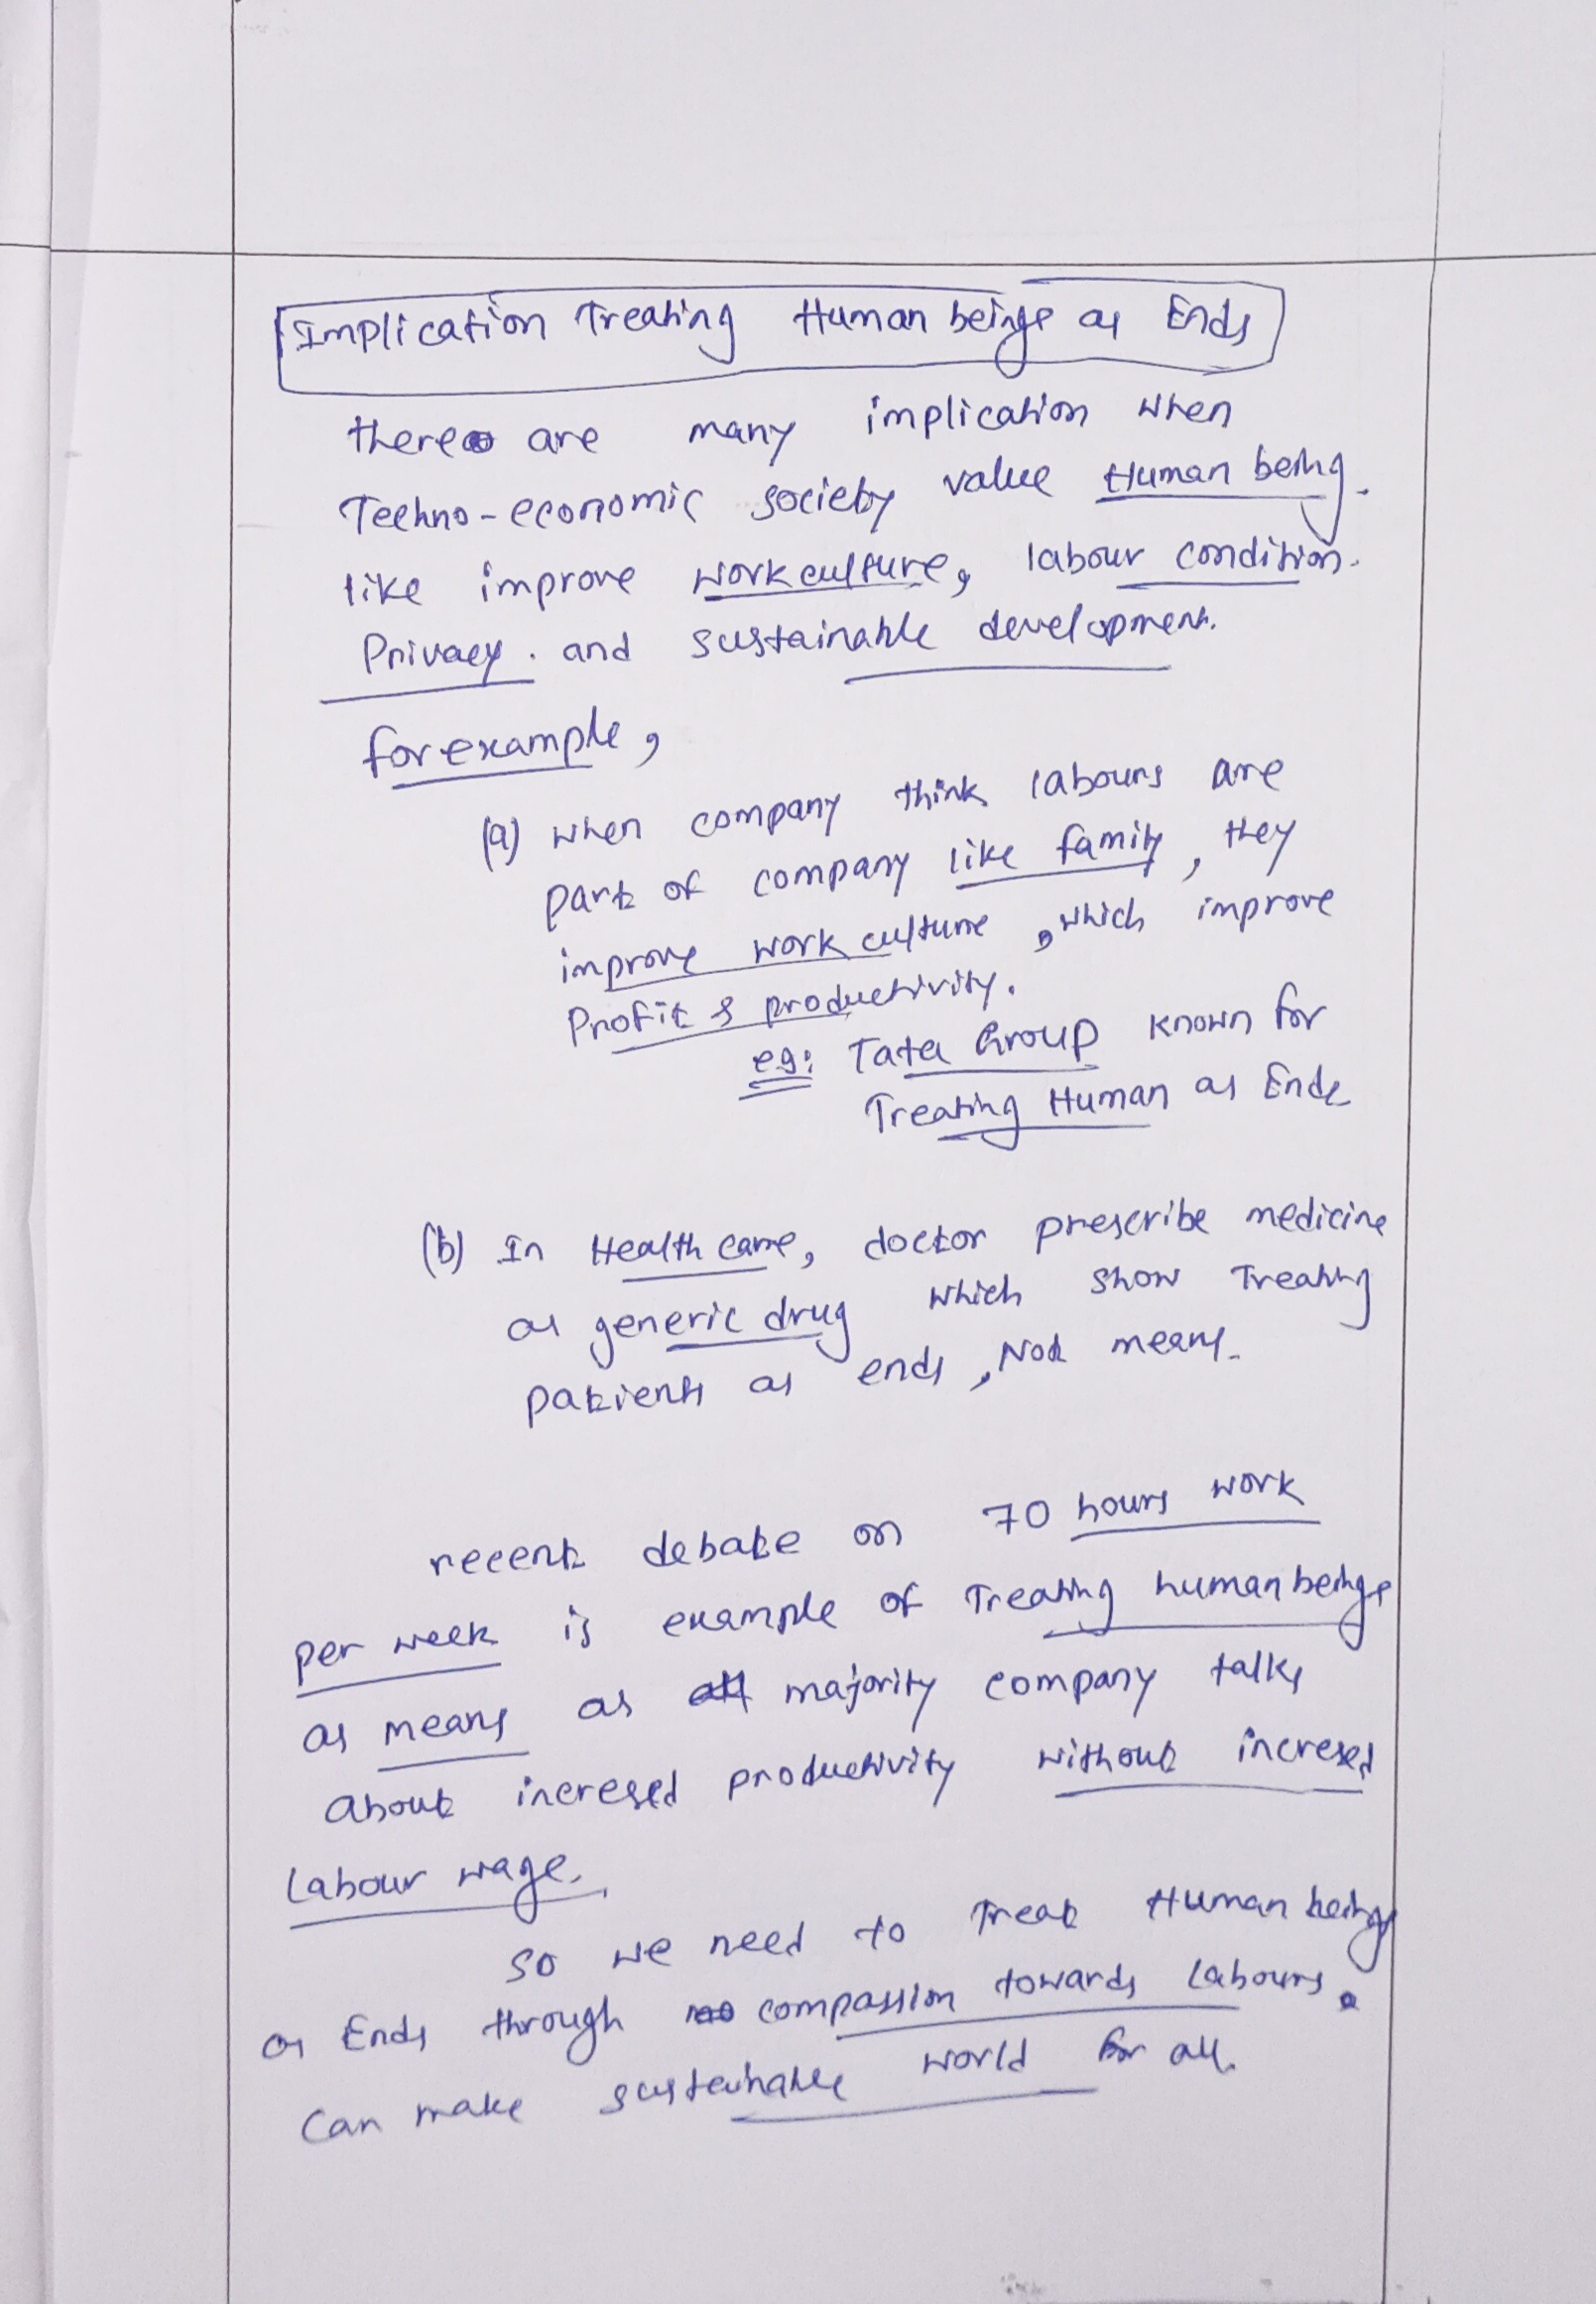 Implication Treating Human beings as Ends
there are many implication when
Techno-economic society value Human being.
like improve work culture, labour condition.
Privacy. and sustainable development.
for example,
(a) when company think labours are
part of company like family, they
improve work culture, which improve
Profit & productivity.
eg: Tata Group known for
Treating Human as Ends
(b) In Health care, doctor prescribe medicine
as generic drug which show Treating
patients as ends, Not means.
recent debate on 70 hours work
per week is example of Treating human beings
as means as majority company talks
about incresed productivity without incresed
Labour wage.
so we need to Treat Human beings
as Ends through compassion towards Labours.
Can make sustainable world for all.